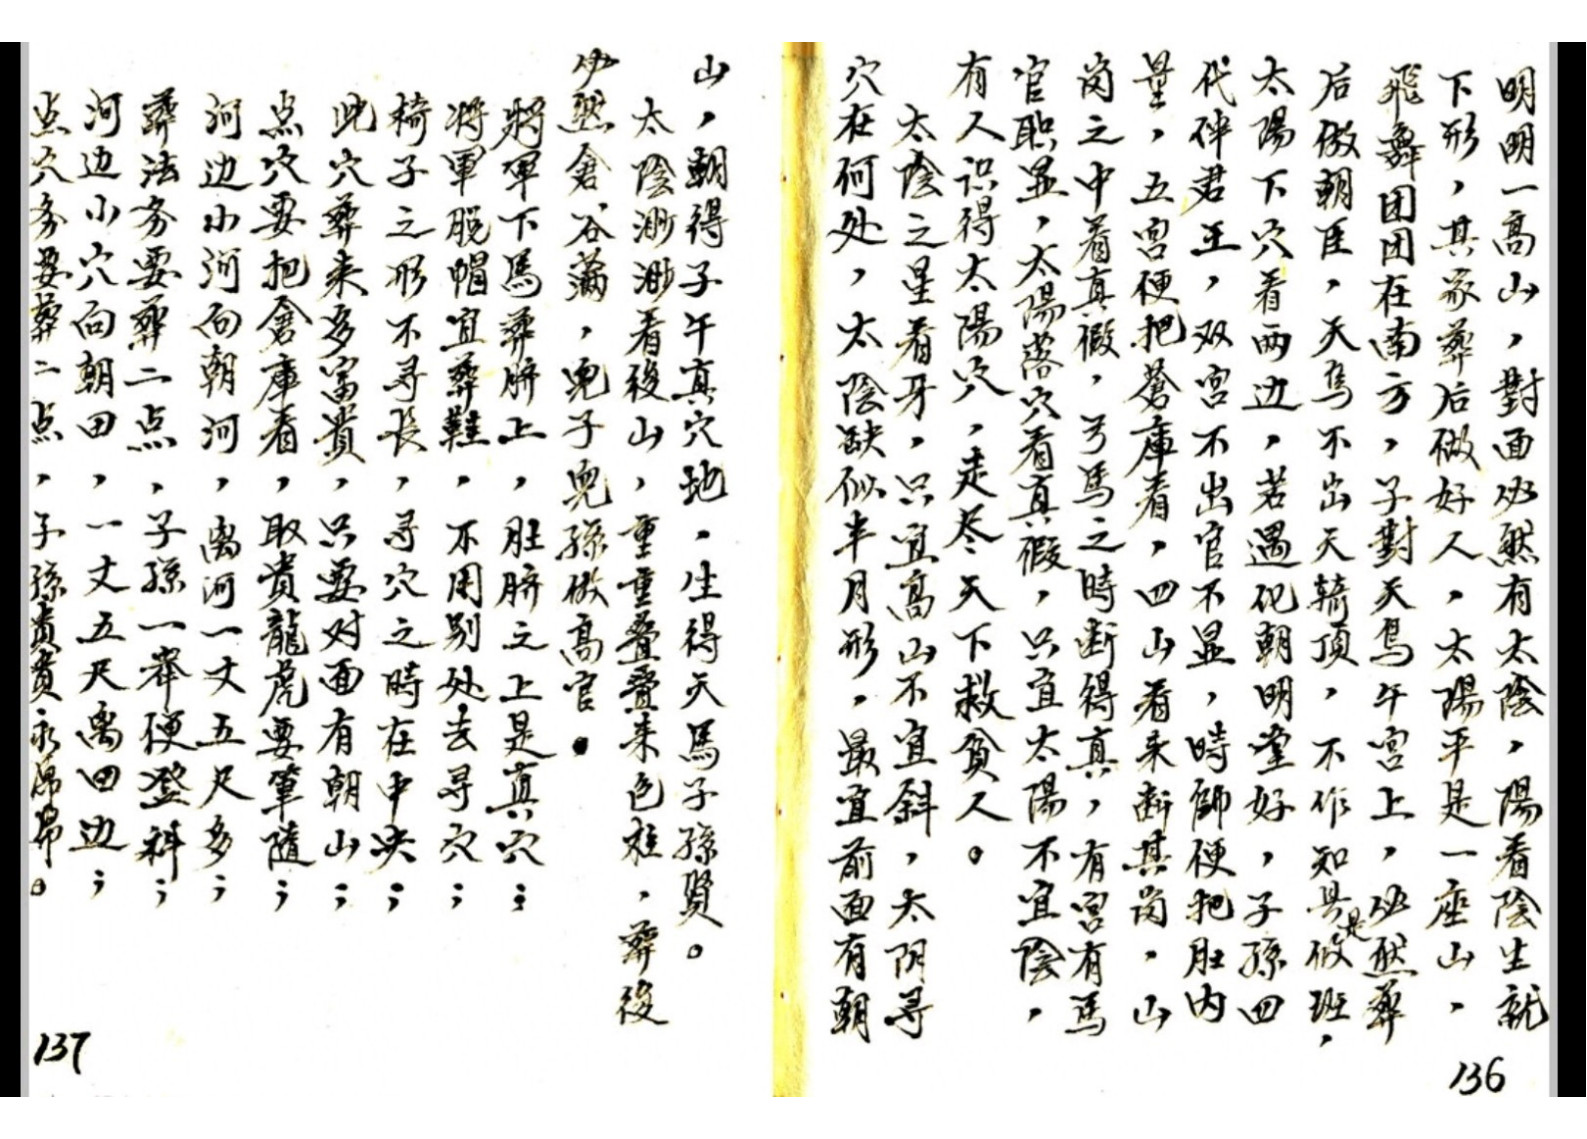 明明一高山，對面必然有太陰，陽看陰生就
下形，其家葬后做好人，太陽平是一座山，
飛舞团团在南方，子對天馬午宮上，必然葬
后做朝臣，天馬不出天轎頂，不作知县是做班，
太陽下穴看两边，若遇化朝明堂好，子孫四
代伴君王，双宮不出官不显，時師便把肚内
量，五宮便把蒼庫看，四山看来断其崗，山
崗之中看真假，弓馬之時断得真，有宮有馬
官职显，太陽落穴看真假，只宜太陽不宜陰，
有人识得太陽穴，走尽天下救貧人。
太陰之星看牙，只宜高山不宜斜，太阴寻
穴在何处，太陰缺似半月形，最宜前面有朝
136
山，朝得子午真穴地，生得天馬子孫賢。
太陰渺渺看後山，重重叠叠来色桩，葬後
必然倉谷滿，兜子兜孫做高官。
將軍下馬葬臍上，肚臍之上是真穴；
将軍脱帽宜葬鞋，不用别处去寻穴；
椅子之形不寻長，寻穴之時在中决；
此穴葬来多富貴，只要对面有朝山；
点穴要把倉庫看，取貴龍虎要筆隨；
河边小河向朝河，离河一丈五尺多；
葬法务要葬二点，子孫一举便登科；
河边小穴向朝田，一丈五尺离田边；
点穴务要葬二点，子孫貴貴永昂昂。
137